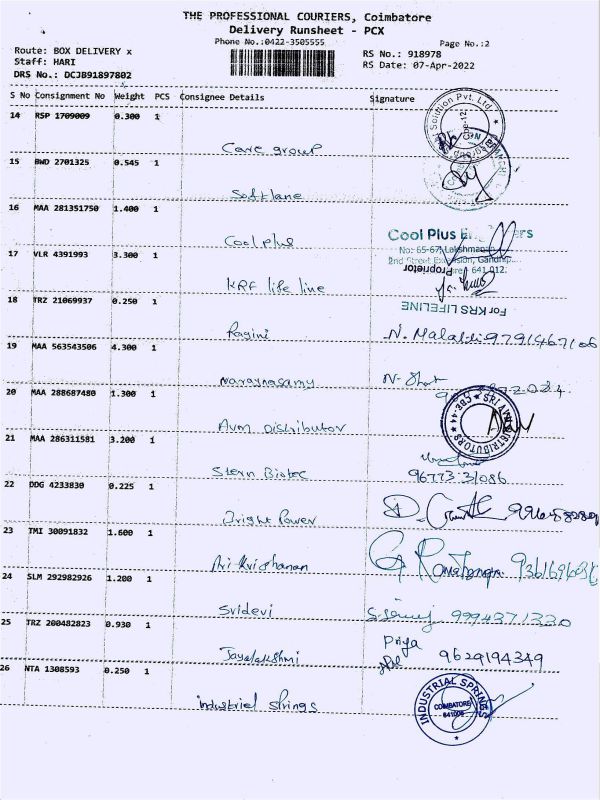 THE PROFESSIONAL COURIERS, Coimbatore
Delivery Runsheet - PCX
Phone No.:0422-3505555
Page No.:2
Route: BOX DELIVERY x
RS No.: 918978
Staff: HARI
RS Date: 07-Apr-2022
DRS No.: DCJB91897802
S No Consignment No Weight PCS Consignee Details Signature
14 RSP 1709009 0.300 1
Care group
15 BWD 2701325 0.545 1
Softlane
16 MAA 281351750 1.400 1
Cool plus
Cool Plus
No: 65-67, Lakshmanan
2nd Street Extension, Gandhip
641 012.
17 VLR 4391993 3.300 1
KRF life line
Proprietor
For KRS LIFELINE
18 TRZ 21069937 0.250 1
Ragini
19 MAA 563543506 4.300 1
Naraynasamy
20 MAA 288687480 1.300 1
Avm Distributor
21 MAA 286311581 3.200 1
Stern Biotec
96773 31086
22 DDG 4233830 0.225 1
Bright Power
23 TMI 30091832 1.600 1
Ari Krishanan
24 SLM 292982926 1.200 1
Sridevi
9994371330
25 TRZ 200482823 0.930 1
Priya
Jayalakshmi
9629194349
26 NTA 1308593 0.250 1
industrial springs
INDUSTRIAL SPRINGS
COIMBATORE
641006